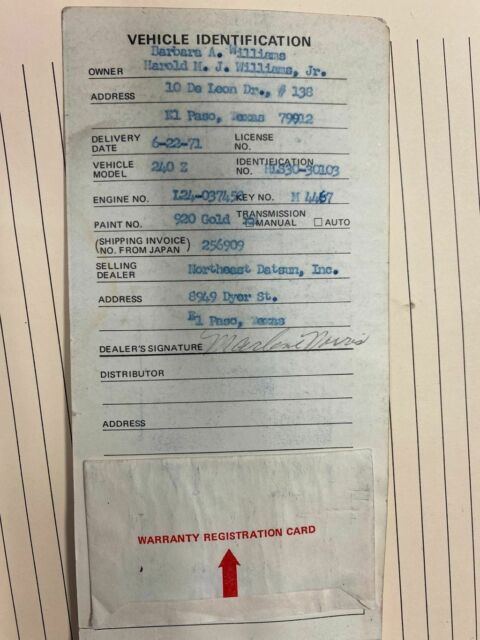 VEHICLE IDENTIFICATION
Barbara A. Williams
OWNER Harold M. J. Williams, Jr.
ADDRESS 10 De Leon Dr., # 138
El Paso, Texas 79912
DELIVERY DATE 6-22-71 LICENSE NO.
VEHICLE MODEL 240 Z IDENTIFICATION NO. HLS30-30103
ENGINE NO. L24-037458 KEY NO. M 4467
PAINT NO. 920 Gold TRANSMISSION MANUAL AUTO
(SHIPPING INVOICE NO. FROM JAPAN) 256909
SELLING DEALER Northeast Datsun, Inc.
ADDRESS 8949 Dyer St.
El Paso, Texas
DEALER'S SIGNATURE Marlene Norris
DISTRIBUTOR
ADDRESS
WARRANTY REGISTRATION CARD